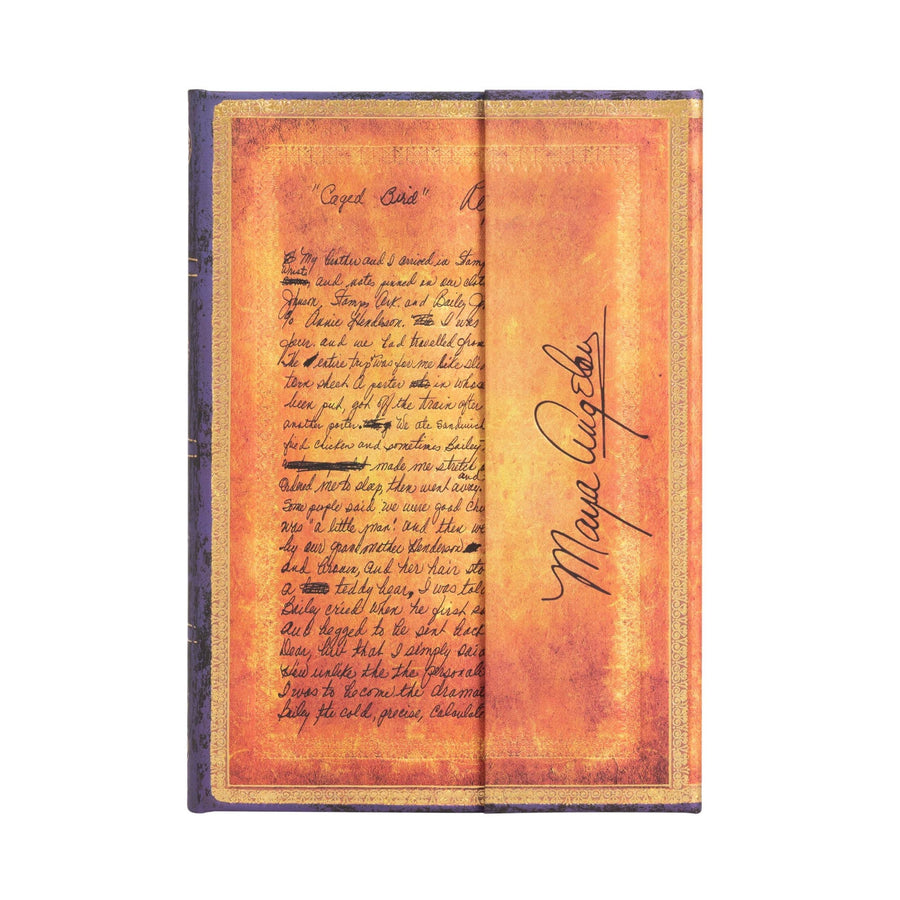 "Caged Bird" Re
My brother and I arrived in Stam
wrists
and notes pinned on our clot
Johnson, Stamps Ark. and Bailey J
c/o Annie Henderson. I was
and we had travelled from
The entire trip was for me like sli
torn sheet A porter in whose
been put, got off the train after
another porter. We ate sandwich
fried chicken and sometimes Bailey
made me stretch
and
Ordered me to sleep, then went away.
Some people said we were good chi
was "a little man". And then we
by our grandmother Henderson
and brown, and her hair sto
a teddy bear, I was told
Bailey cried when he first s
and begged to be sent back
Dear, but that I simply said
unlike the the personali
I was to become the drama
Bailey the cold, precise, calculate
Maya Angelou